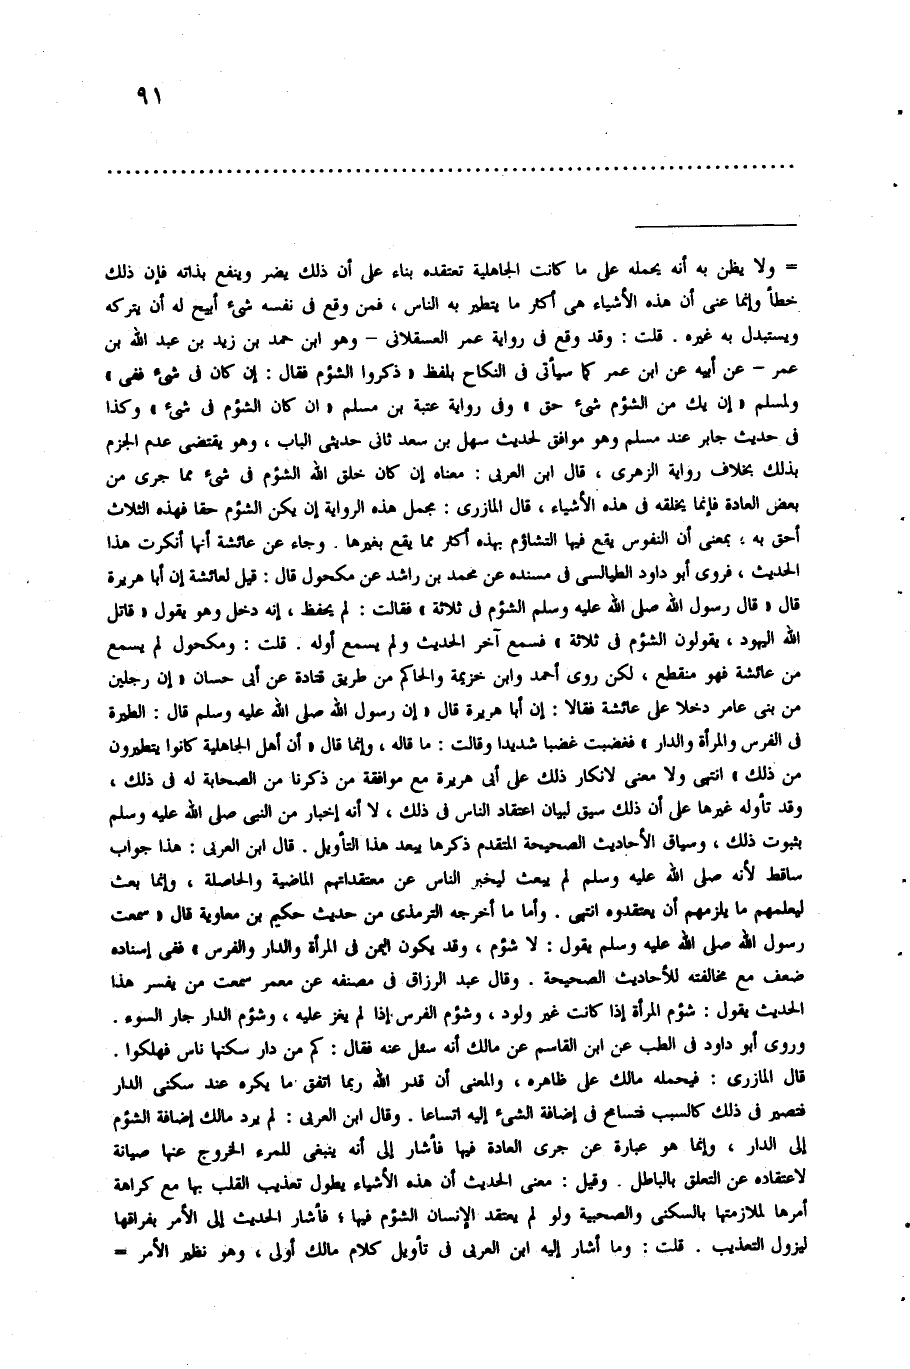 ٩١
= ولا يظن به أنه يحمله على ما كانت الجاهلية تعتقده بناء على أن ذلك يضر وينفع بذاته فإن ذلك
خطأ وإنما عنى أن هذه الأشياء هى أكثر ما يتطير به الناس ، فمن وقع فى نفسه شىء أبيح له أن يتركه
ويستبدل به غيره . قلت : وقد وقع فى رواية عمر العسقلانى – وهو ابن حمد بن زيد بن عبد الله بن
عمر – عن أبيه عن ابن عمر كما سيأتى فى النكاح بلفظ « ذكروا الشؤم فقال : إن كان فى شىء ففى »
ولمسلم « إن يك من الشؤم شىء حق » وفى رواية عتبة بن مسلم « ان كان الشؤم فى شىء » وكذا
فى حديث جابر عند مسلم وهو موافق لحديث سهل بن سعد ثانى حديثى الباب ، وهو يقتضى عدم الجزم
بذلك بخلاف رواية الزهرى ، قال ابن العربى : معناه إن كان خلق الله الشؤم فى شىء مما جرى من
بعض العادة فإنما يخلقه فى هذه الأشياء ، قال المازرى : مجمل هذه الرواية إن يكن الشؤم حقا فهذه الثلاث
أحق به ؛ بمعنى أن النفوس يقع فيها التشاؤم بهذه أكثر مما يقع بغيرها . وجاء عن عائشة أنها أنكرت هذا
الحديث ، فروى أبو داود الطيالسى فى مسنده عن محمد بن راشد عن مكحول قال : قيل لعائشة إن أبا هريرة
قال « قال رسول الله صلى الله عليه وسلم الشؤم فى ثلاثة » فقالت : لم يحفظ ، إنه دخل وهو يقول « قاتل
الله اليهود ، يقولون الشؤم فى ثلاثة » فسمع آخر الحديث ولم يسمع أوله . قلت : ومكحول لم يسمع
من عائشة فهو منقطع ، لكن روى أحمد وابن خزيمة والحاكم من طريق قتادة عن أبى حسان « إن رجلين
من بنى عامر دخلا على عائشة فقالا : إن أبا هريرة قال « إن رسول الله صلى الله عليه وسلم قال : الطيرة
فى الفرس والمرأة والدار » فغضبت غضبا شديدا وقالت : ما قاله ، وإنما قال « أن أهل الجاهلية كانوا يتطيرون
من ذلك » انتهى ولا معنى لانكار ذلك على أبى هريرة مع موافقة من ذكرنا من الصحابة له فى ذلك ،
وقد تأوله غيرها على أن ذلك سيق لبيان اعتقاد الناس فى ذلك ، لا أنه إخبار من النبى صلى الله عليه وسلم
بثبوت ذلك ، وسياق الأحاديث الصحيحة المتقدم ذكرها يبعد هذا التأويل . قال ابن العربى : هذا جواب
ساقط لأنه صلى الله عليه وسلم لم يبعث ليخبر الناس عن معتقداتهم الماضية والحاصلة ، وإنما بعث
ليعلمهم ما يلزمهم أن يعتقدوه انتهى . وأما ما أخرجه الترمذى من حديث حكيم بن معاوية قال « سمعت
رسول الله صلى الله عليه وسلم يقول : لا شؤم ، وقد يكون اليمن فى المرأة والدار والفرس » ففى إسناده
ضعف مع مخالفته للأحاديث الصحيحة . وقال عبد الرزاق فى مصنفه عن معمر سمعت من يفسر هذا
الحديث يقول : شؤم المرأة إذا كانت غير ولود ، وشؤم الفرس إذا لم يغز عليه ، وشؤم الدار جار السوء .
وروى أبو داود فى الطب عن ابن القاسم عن مالك أنه سئل عنه فقال : كم من دار سكنها ناس فهلكوا .
قال المازرى : فيحمله مالك على ظاهره ، والمعنى أن قدر الله ربما اتفق ما يكره عند سكنى الدار
فتصير فى ذلك كالسبب فتسامح فى إضافة الشىء إليه اتساعا . وقال ابن العربى : لم يرد مالك إضافة الشؤم
إلى الدار ، وإنما هو عبارة عن جرى العادة فيها فأشار إلى أنه ينبغى للمرء الخروج عنها صيانة
لاعتقاده عن التعلق بالباطل . وقيل : معنى الحديث أن هذه الأشياء يطول تعذيب القلب بها مع كراهة
أمرها لملازمتها بالسكنى والصحبية ولو لم يعتقد الإنسان الشؤم فيها ؛ فأشار الحديث إلى الأمر بفراقها
ليزول التعذيب . قلت : وما أشار إليه ابن العربى فى تأويل كلام مالك أولى ، وهو نظير الأمر =